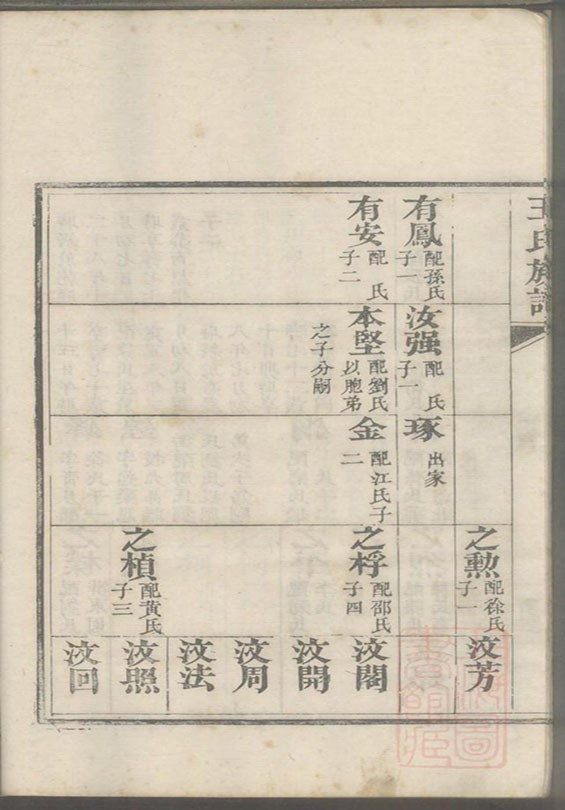 王氏族譜
有鳳 配孫氏 子一
有安 配 氏 子二
汝强 配 氏 子一
本堅 配劉氏 以胞弟之子分嗣
琢 出家
金 配江氏子二
之勲 配徐氏 子一
之桴 配邵氏 子四
之楨 配黄氏 子三
汶芳
汶閣
汶開
汶周
汶法
汶照
汶回